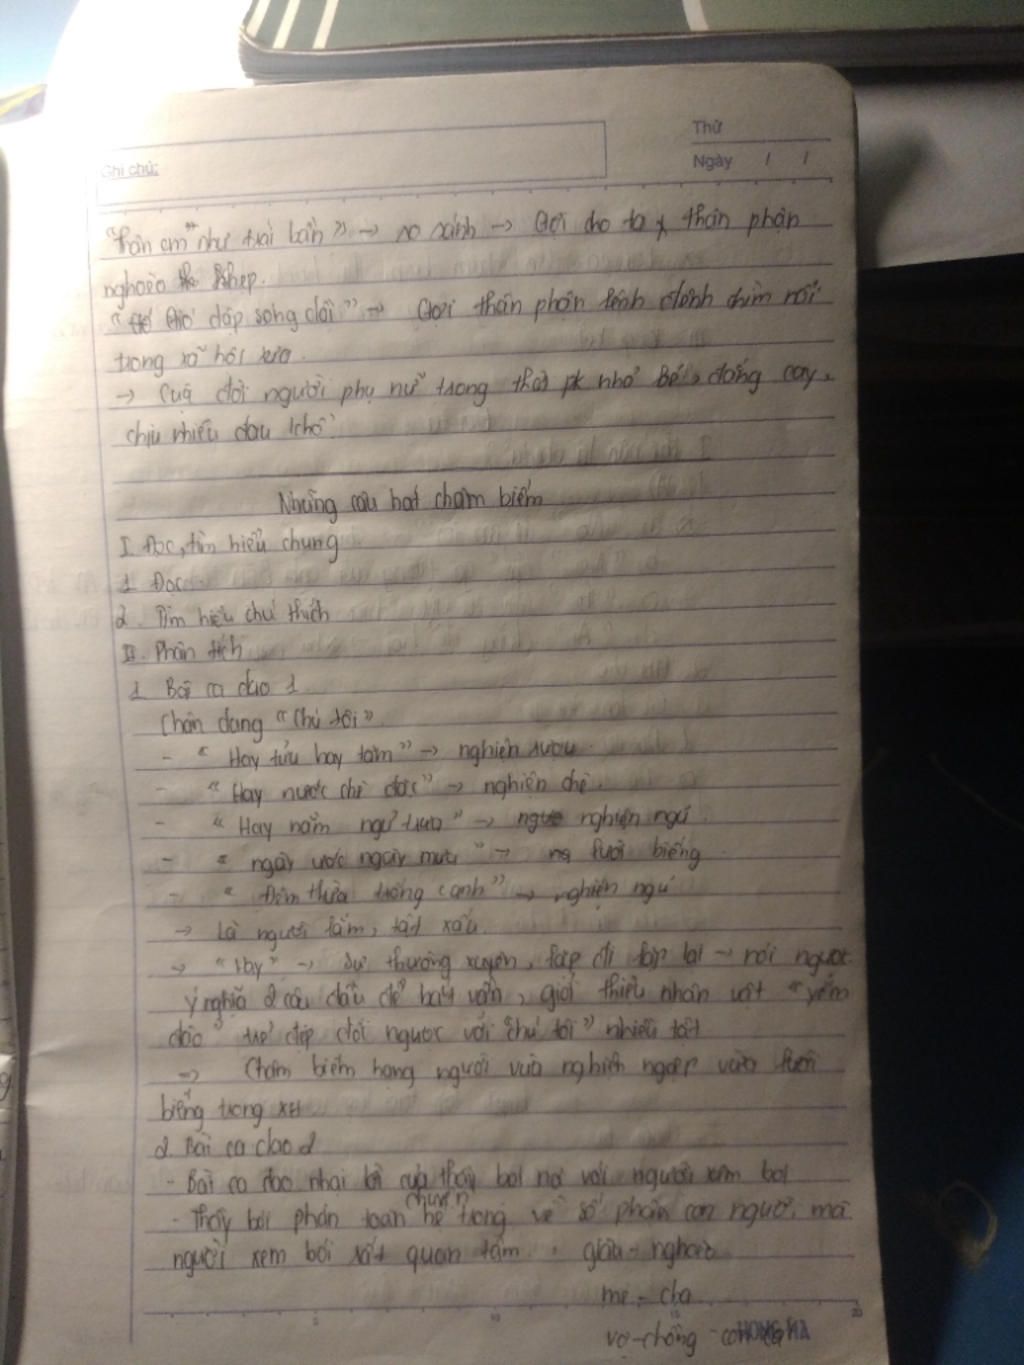 Ghi chú:
Thứ
Ngày / /
"Thân em" như trái bần" → so sánh → Gợi cho ta thân phận
nghèo khép.
Gió dập sóng dồi" → Gợi thân phận lênh đênh chìm nổi
trong xã hội xưa.
→ Cuộ đời người phụ nữ trong thời pk nhỏ Bé, đắng cay,
chịu nhiều đau khổ
Những câu hát châm biếm
I. Đọc, tìm hiểu chung
1. Đọc
2. Tìm hiểu chú thích
II. Phân tích
1 Bài ca dao 1
Chân dung "Chú tôi"
- " Hay tửu hay tăm" → nghiện rượu
- " Hay nước chè đặc" → nghiện chè.
- " Hay nằm ngủ trưa" → nghiện ngủ
- " ngày ước ngày mưa" → lười biếng
- " Đêm thừa trống canh" → nghiện ngủ
→ Là người lắm, tật xấu
→ "Hay" → sự thường xuyên, lặp đi lặp lại → nói ngược
ý nghĩa 2 câu đầu để bắt vần, giới thiệu nhân vật "yếm
đào" đẹp đối ngược với "chú tôi" nhiều tật
=> Châm biếm hạng người vừa nghiện ngập vừa lười
biếng trong XH
2. Bài ca dao 2
- Bài ca dao nhại lời của thầy bói nói với người xem bói
- Thầy bói phán toàn chuyện hệ trọng về số phận con người mà
người xem bói rất quan tâm: giàu - nghèo
mẹ - cha
vợ - chồng - con
5 10 15 20
HONG HA